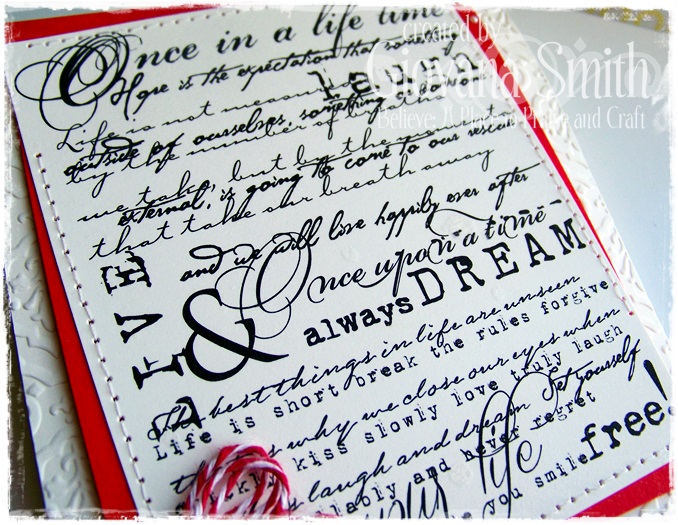 Once in a life time
created by
Giovana Smith
Believe: A Place to Praise and Craft
Hope is the expectation that something
Laugh
Life is not measured
outside of ourselves, something
by the number of breaths
we take, but by the moments
external, is going to come to our rescue
that take our breath away
and we will live happily ever after
Once upon a time
&
always DREAM
The best things in life are unseen
Life is short break the rules forgive
that's why we close our eyes when
quickly kiss slowly love truly laugh
kiss laugh and dream Set yourself
free!
and never regret
your life
you smile